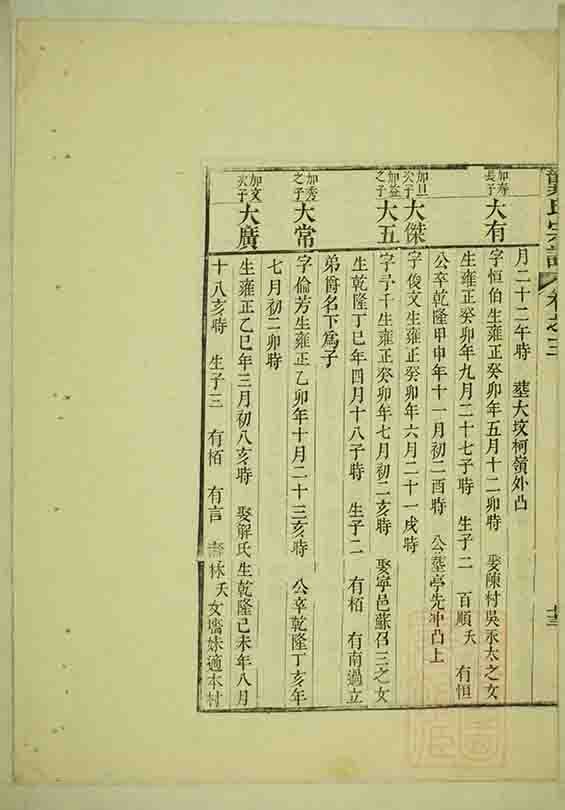 月二十二午時 墓大坟柯嶺外凸
加壽長子
大有
字恒伯生雍正癸卯年五月十二卯時 娶陳村吳永太之女
生雍正癸卯年九月二十七子時 生子二 百順夭 有恒
公卒乾隆甲申年十一月初二酉時 公墓亭先冲凸上
加旦次子
大傑
字俊文生雍正癸卯年六月二十一戌時
加益之子
大五
字子千生雍正癸卯年七月初二亥時 娶寧邑蘇召三之女
生乾隆丁巳年四月十八子時 生子二 有栢 有南過立
弟爵名下為子
加秀之子
大常
字倫芳生雍正乙卯年十月二十三亥時 公卒乾隆丁亥年
七月初二卯時
加文次子
大廣
生雍正乙巳年三月初八亥時 娶解氏生乾隆己未年八月
十八亥時 生子三 有栢 有言 壽林夭 女壻妹適本村